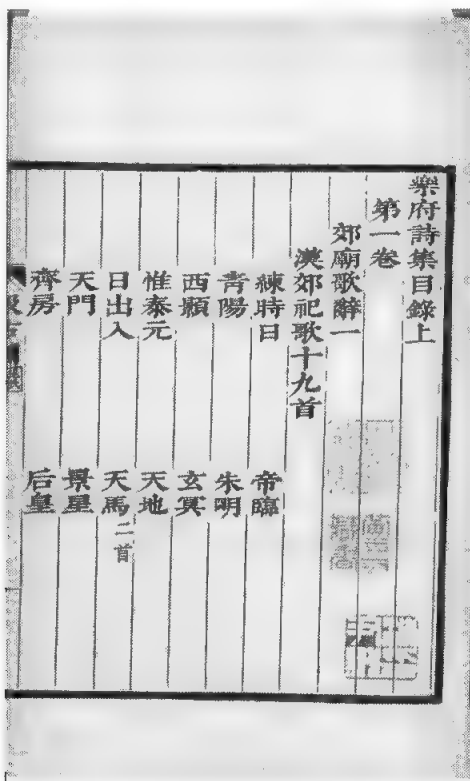 樂府詩集目錄上
第一卷
郊廟歌辭一
漢郊祀歌十九首
練時日 帝臨
青陽 朱明
西顥 玄冥
惟泰元 天地
日出入 天馬二首
天門 景星
齊房 后皇